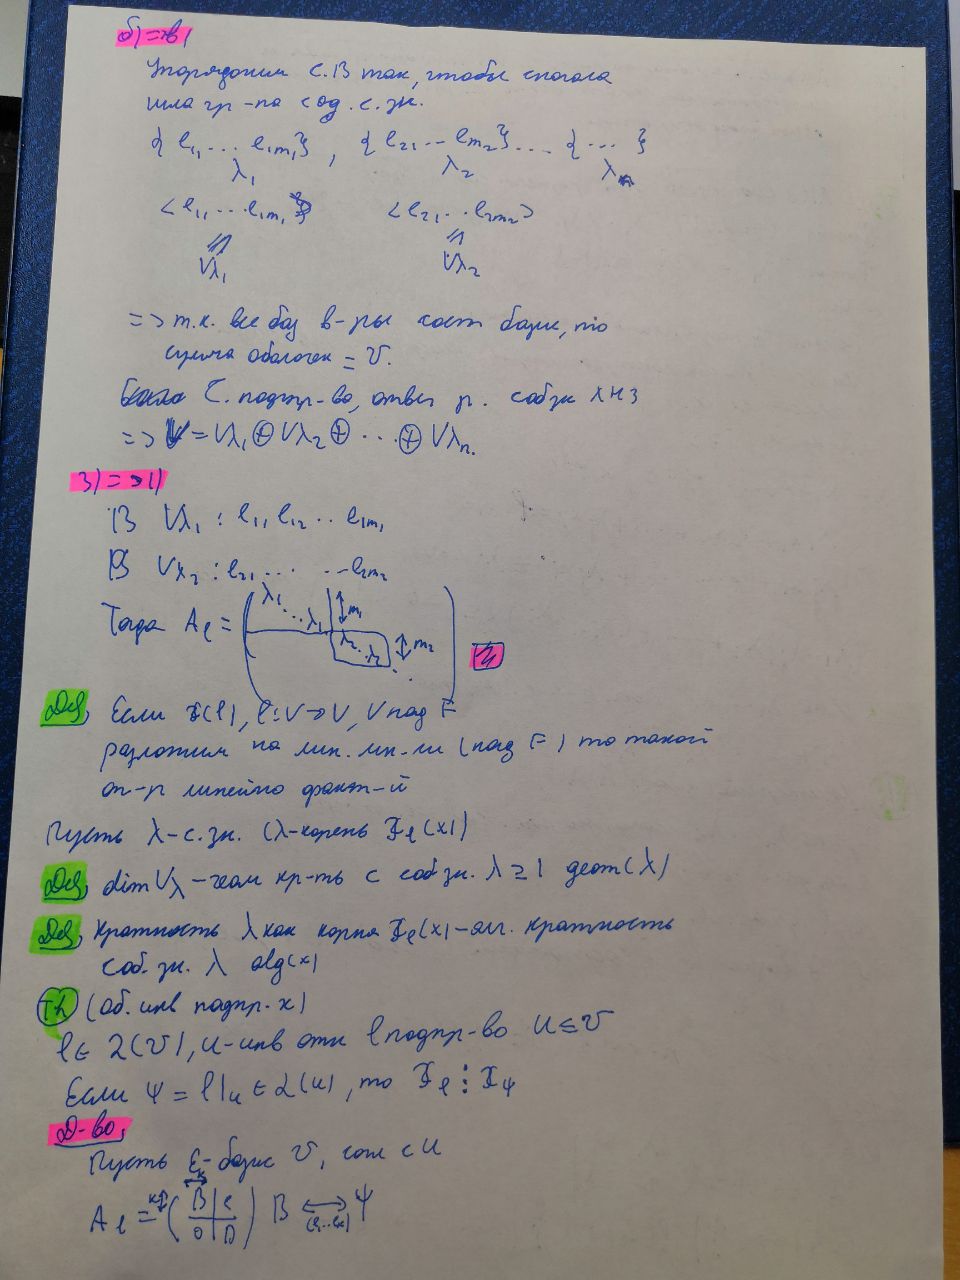 б) => в)
Упорядочим С.В так, чтобы сначала
шла гр-па соб. с. зн.
{e₁₁ ... e₁ₘ₁}, {e₂₁ ... eₘ₂} ... {...}
λ₁ λ₂ λₙ
<e₁₁ ... e₁ₘ₁> <e₂₁ ... e₂ₘ₂>
|| ||
Vλ₁ Vλ₂
=> т.к. все баз в-ры сост базис, то
сумма оболочек = V.
С. подпр-во, отвеч р. соб зн ЛНЗ
=> V = Vλ₁ ⊕ Vλ₂ ⊕ ... ⊕ Vλₙ.
3) => 1)
В Vλ₁ : e₁₁ e₁₂ .. e₁ₘ₁
В Vλ₂ : e₂₁ ... ... e₂ₘ₂
Тогда Aₑ = ( λ₁ ... λ₁ ↕ m₁ λ₂ .. λ₂ ↕ m₂ .. )
Def, Если Φ(φ), φ: V → V, V над F
разложим на лин. мн-ли (над F) то такой
оп-р линейно факт-й
Пусть λ - с. зн. (λ - корень Φφ(x))
Def, dim Vλ - геом кр-ть с соб зн. λ ≥ 1 geom(λ)
Def, Кратность λ как корня Φφ(x) - алг. кратность
соб. зн. λ alg(x)
Th (Об. инв подпр. х)
φ ∈ L(V), U - инв отн φ подпр-во U ⊆ V
Если Ψ = φ|ᵤ ∈ L(U), то Φφ ⋮ ΦΨ
Д-во,
Пусть ε - базис V, согл с U
Aφ = ( B | C / 0 | D ) B ⟷ (e₁...eₖ) Ψ